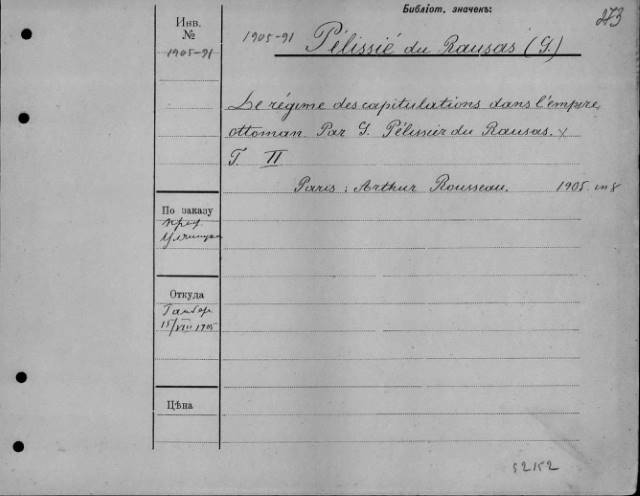 Библіот. значекъ:
273
Инв.
№
1905-91
1905-91 Pélissié du Rausas (G.)
Le régime des capitulations dans l'empire
ottoman. Par G. Pélissier du Rausas. x
T. II
Paris: Arthur Rousseau. 1905. in 8
По заказу
проф.
Откуда
15/VIII 1905
Цѣна
52152